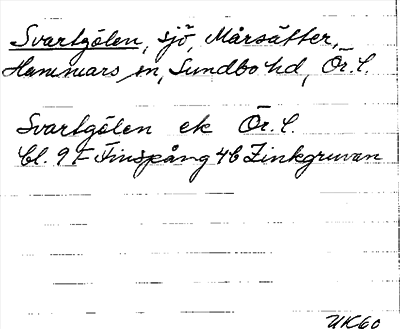 Svartgölen, sjö, Mårsätter,
Hammars sn, Sundbo hd, Ör. l.
Svartgölen ek Ör. l.
Bl. 9F Finspång 4b Zinkgruvan
UK60